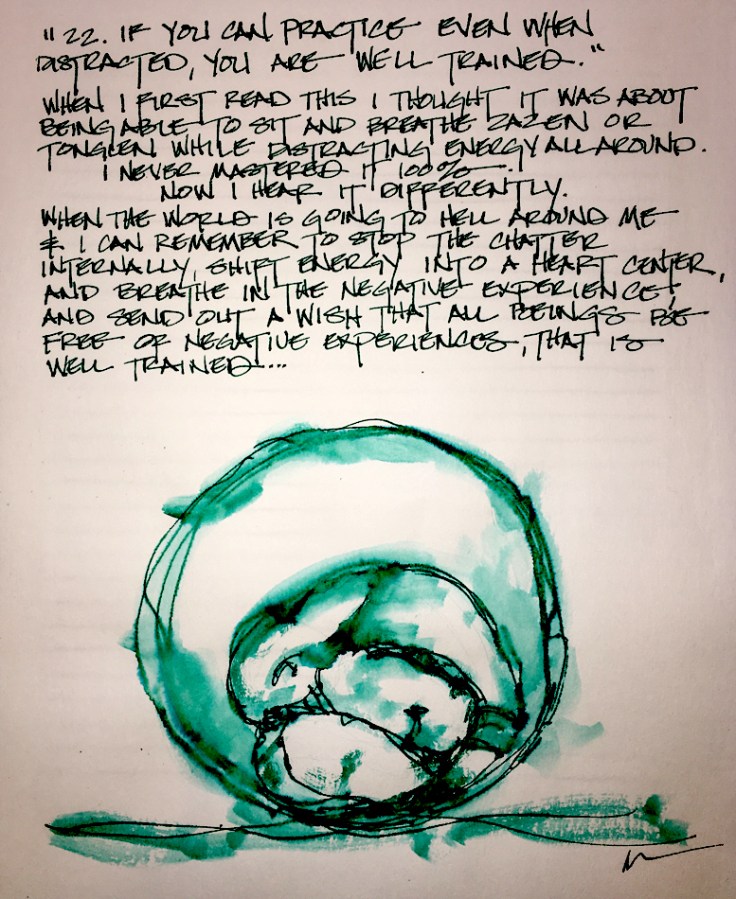 "22. IF YOU CAN PRACTICE EVEN WHEN
DISTRACTED, YOU ARE WELL TRAINED."
WHEN I FIRST READ THIS I THOUGHT IT WAS ABOUT
BEING ABLE TO SIT AND BREATHE ZAZEN OR
TONGLEN WHILE DISTRACTING ENERGY ALL AROUND.
I NEVER MASTERED IT 100%.
NOW I HEAR IT DIFFERENTLY.
WHEN THE WORLD IS GOING TO HELL AROUND ME
& I CAN REMEMBER TO STOP THE CHATTER
INTERNALLY, SHIFT ENERGY INTO A HEART CENTER,
AND BREATHE IN THE NEGATIVE EXPERIENCE;
AND SEND OUT A WISH THAT ALL BEINGS BE
FREE OF NEGATIVE EXPERIENCES, THAT IS
WELL TRAINED...